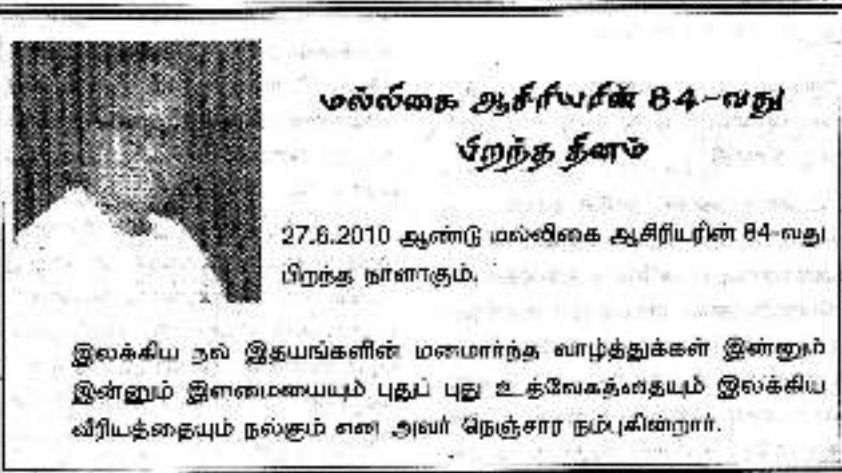 மல்லிகை ஆசிரியரின் 84-வது
பிறந்த தினம்
27.6.2010 ஆண்டு மல்லிகை ஆசிரியரின் 84-வது
பிறந்த நாளாகும்.
இலக்கிய நல் இதயங்களின் மனமார்ந்த வாழ்த்துக்கள் இன்னும்
இன்னும் இளமையையும் புதுப் புது உத்வேகத்தையும் இலக்கிய
வீரியத்தையும் நல்கும் என அவர் நெஞ்சார நம்புகின்றார்.